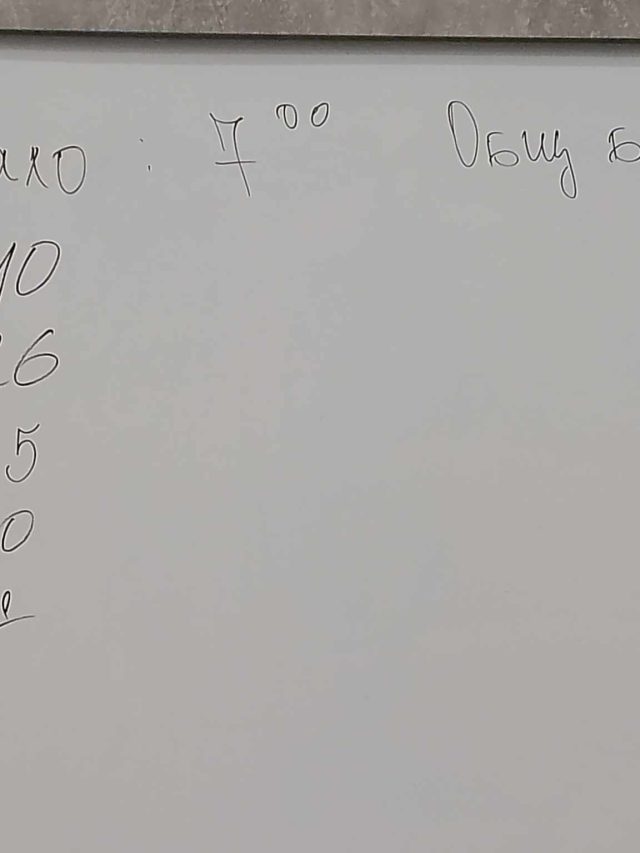 ало : 7 00 Общ б
10
26
5
0